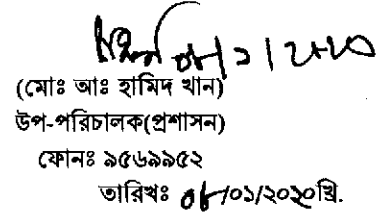 ০৮/১/২০২০
(মোঃ আঃ হামিদ খান)
উপ-পরিচালক(প্রশাসন)
ফোনঃ ৯৫৬৯৯৫২
তারিখঃ ০৮/০১/২০২০খ্রি.